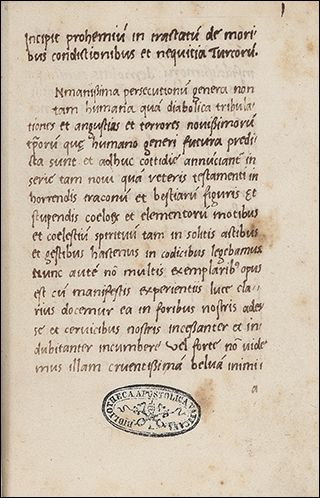 Incipit prohemiũ in tractatũ de mori
bus condictionibus et nequitia Turcorũ.
Nmanissima persecutionũ genera non
tam humana quã diabolica tribula
tiones et angustias et terrores novissimorũ
tp̃orũ que humano generi futura predi
cta sunt et adhuc cottidie annuciant in
serie tam novi quã veteris testamenti in
horrendis draconũ et bestiarũ figuris Et
stupendis coelorũ et elementorũ motibus
et coelestiũ spirituũ tam in solitis astibus
et gestibus hactenus in codicibus legebamus
Nunc autẽ nõ multis exemplaribus opus
est cũ manifestis experientiis luce cla
rius docemur ea in foribus nostris ades
se et cervicibus nostris incessanter et in
dubitanter incumbere Vel forte nõ vide
mus illam cruentissimã beluã inimi
a
BIBLIOTHECA APOSTOLICA VATICANA